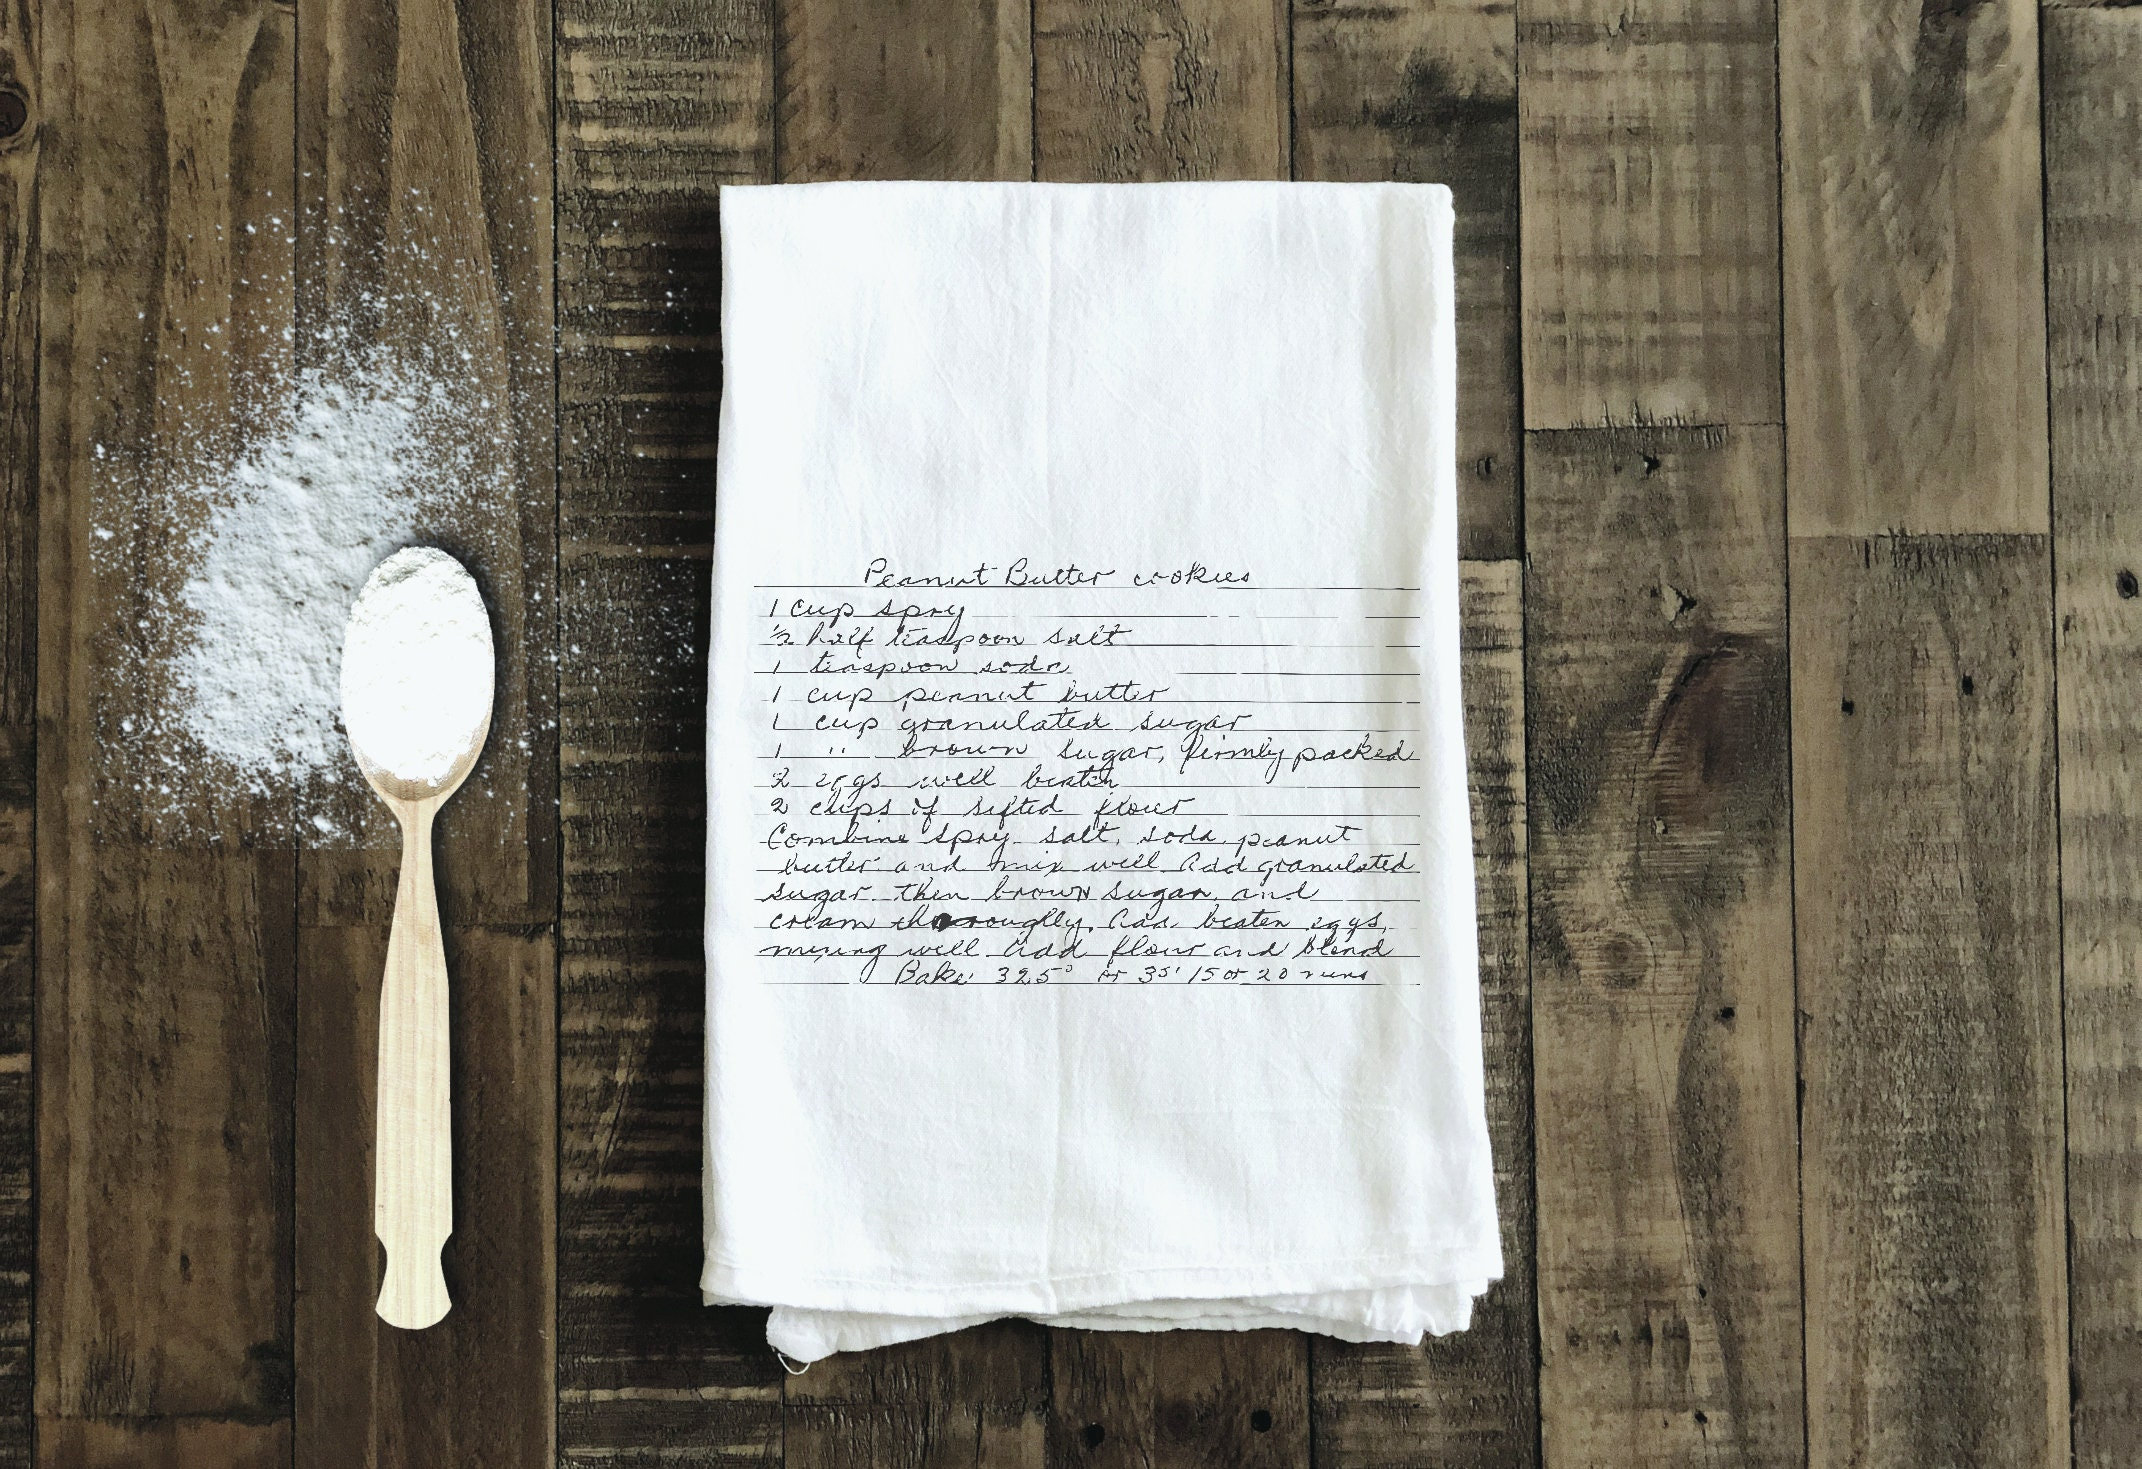 Peanut Butter cookies
1 cup spry
½ half teaspoon salt
1 teaspoon soda
1 cup peanut butter
1 cup granulated sugar
1 " brown sugar, firmly packed
2 eggs well beaten
2 cups of sifted flour
Combine spry, salt, soda, peanut
butter and mix well add granulated
sugar then brown sugar, and
cream thoroughly. Add beaten eggs,
mixing well add flour and blend
Bake 325° or 35' 15 or 20 mins